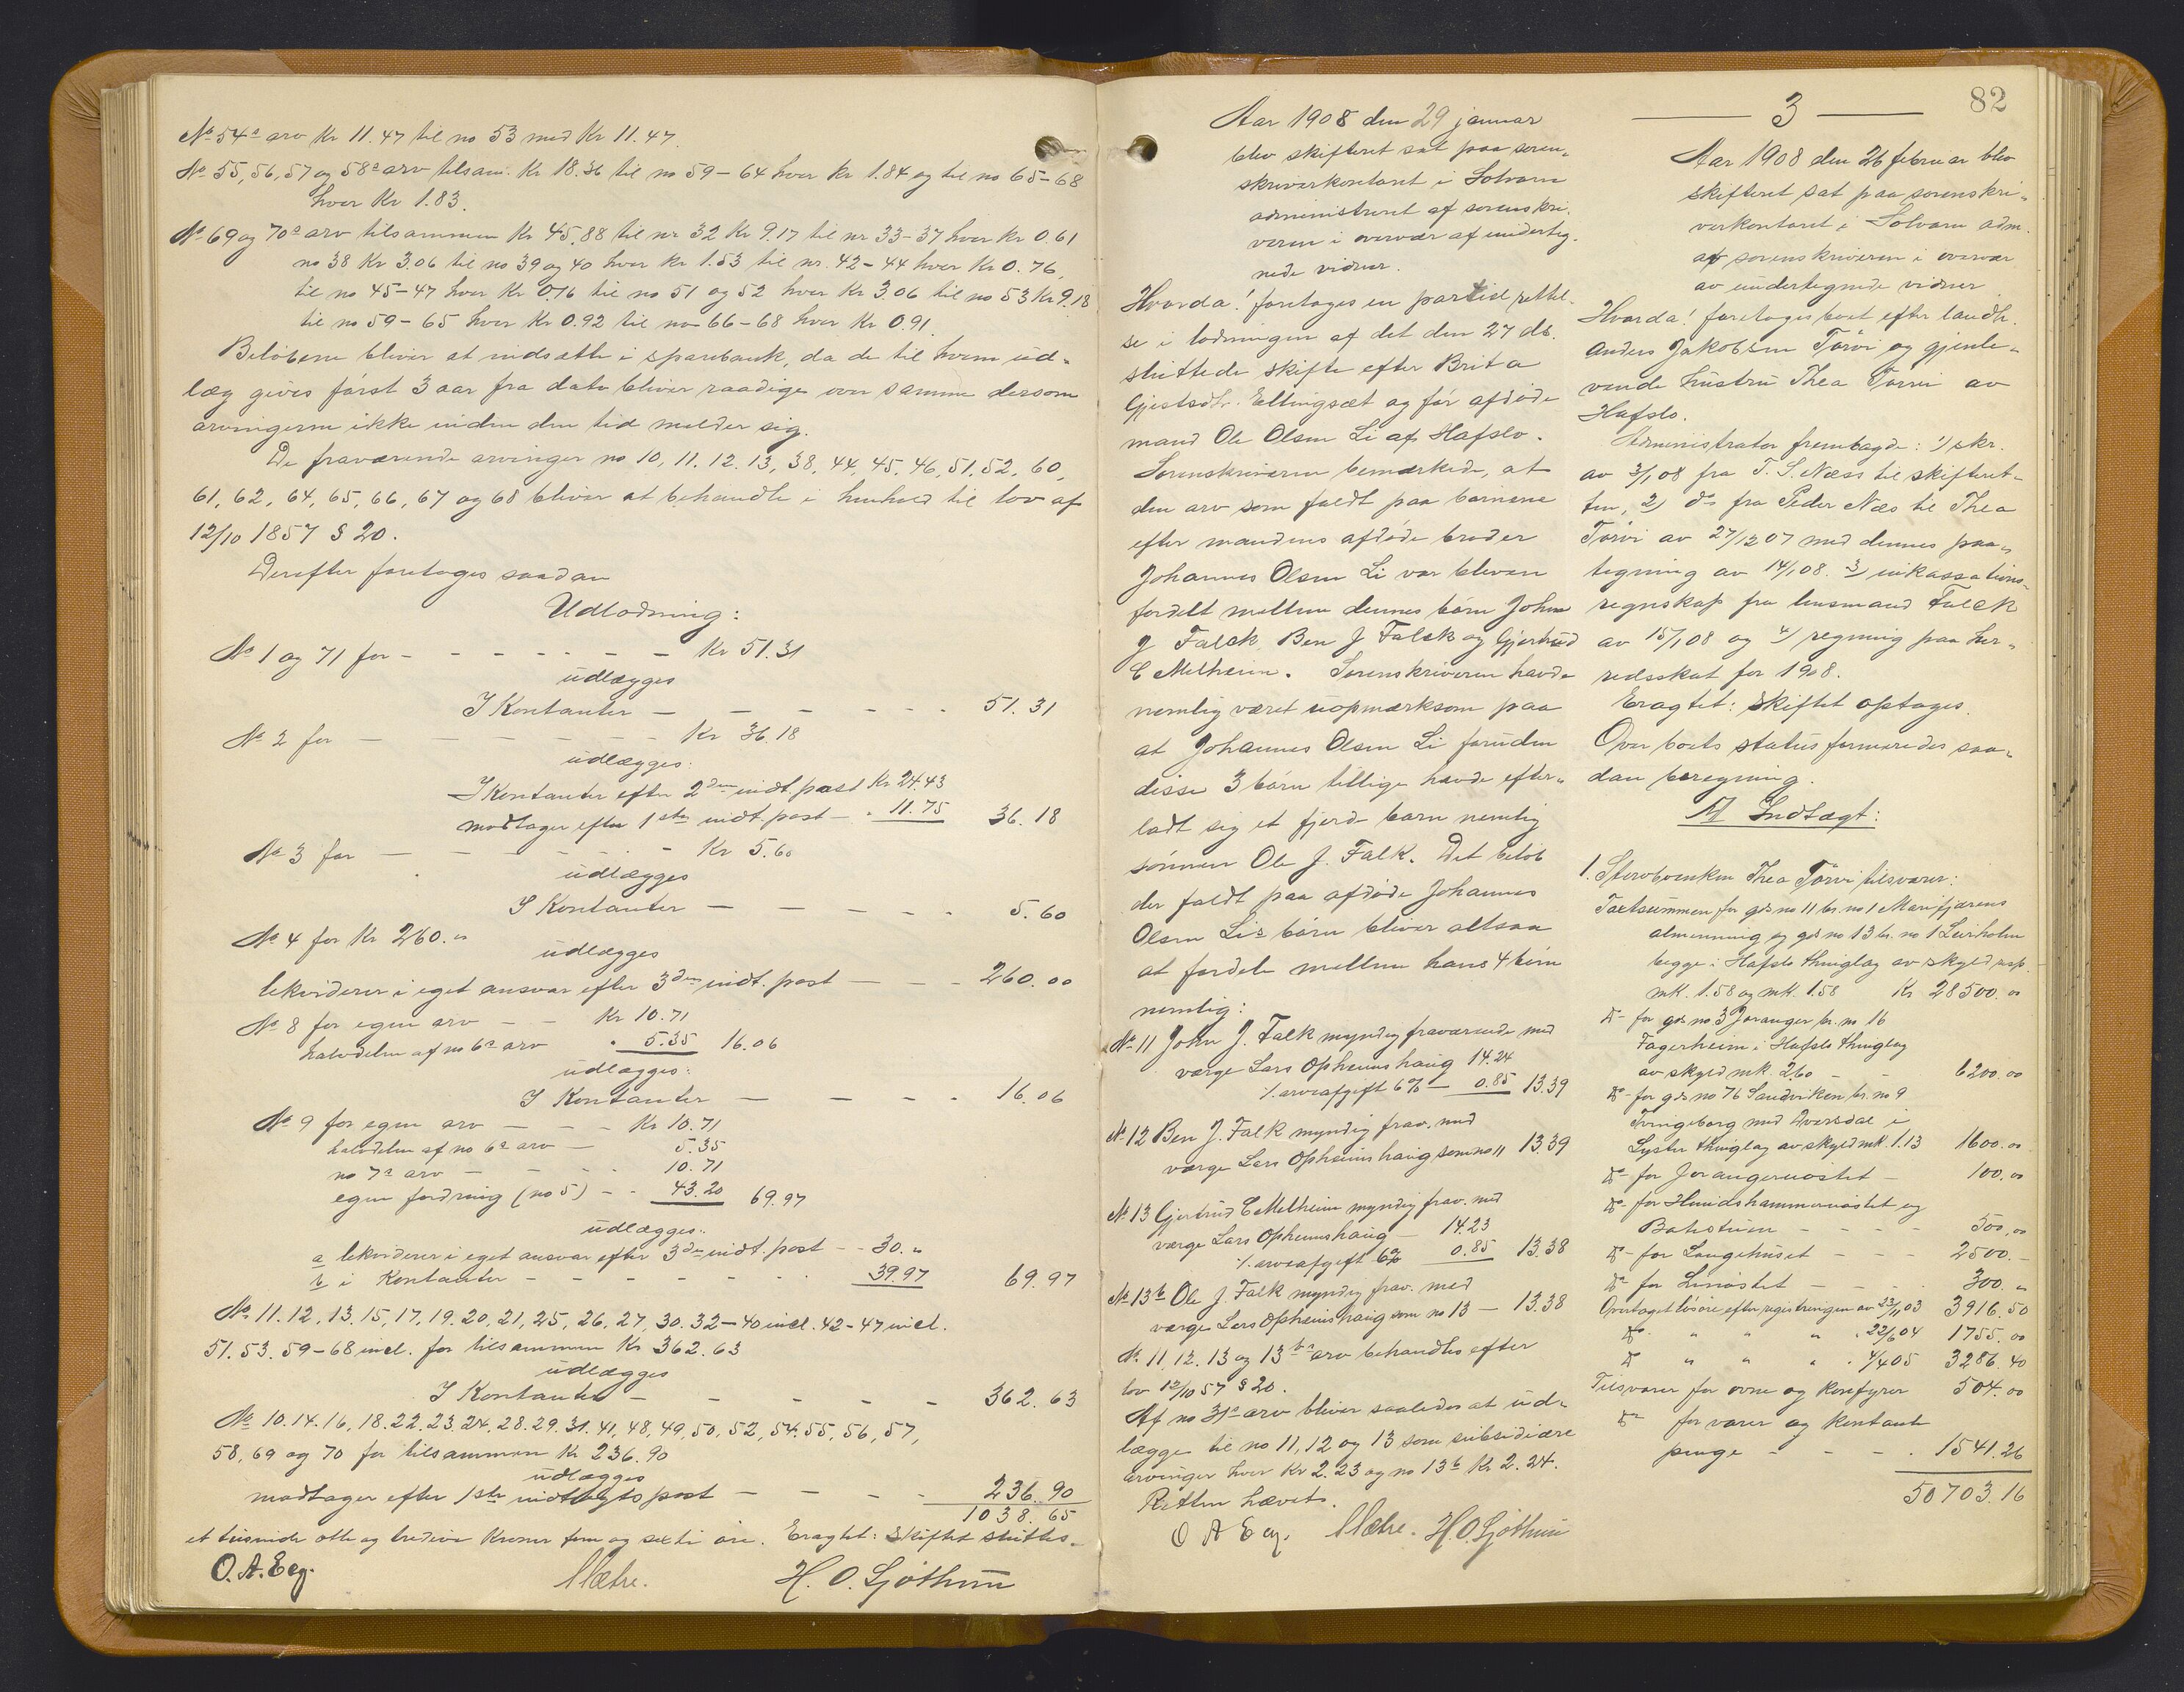 No 54ᵃ arv Kr 11.47 til no 53 med Kr 11.47.
No 55, 56, 57 og 58ᵃ arv tilsam. Kr 18.36 til no 59–64 hver Kr 1.84 og til no 65–68
hver Kr 1.83.
No 69 og 70ᵃ arv tilsammen Kr 45.88 til nr 32 Kr 9.17 til nr 33–37 hver Kr 0.61
no 38 Kr 3.06 til no 39 og 40 hver Kr 1.53 til nr. 42–44 hver Kr 0.76,
til no 45–47 hver Kr 0.76 til no 51 og 52 hver Kr 3.06 til no 53 Kr 9.18
til no 59–65 hver Kr 0.92 til no 66–68 hver Kr 0.91.
Beløbene bliver at indsætte i sparebank, da de til hvem ud-
læg gives først 3 aar fra dato bliver raadige over samme dersom
arvingerne ikke inden den tid melder sig.
De fraværende arvinger no 10, 11. 12. 13, 38, 44, 45, 46, 51, 52, 60,
61, 62, 64, 65, 66, 67 og 68 bliver at behandle i henhold til lov af
12/10 1857 § 20.
Derefter foretoges saadan
Udlodning:
No 1 og 71 for – – – – – – Kr 51.31
udlægges
I Kontanter – – – – – 51.31
No 2 for – – – – – – Kr 36.18
udlægges:
I Kontanter efter 2den indt. post Kr 24.43
modtager efter 1ste indt. post – " 11.75 36.18
No 3 for – – – – – Kr 5.60
udlægges
I Kontanter – – – – – 5.60
No 4 for Kr 260."
udlægges
likviderer i eget ansvar efter 3den indt. post – – – 260.00
No 8 for egen arv – – Kr 10.71
halvdelen af no 6ᵃ arv " 5.35 16.06
udlægges:
I Kontanter – – – – 16.06
No 9 for egen arv – – – Kr 10.71
halvdelen af no 6ᵃ arv – 5.35
no 7ᵃ arv – – – – 10.71
egen fordring (no 5) – – 43.20 69.97
udlægges:
a likviderer i eget ansvar efter 3den indt. post – – 30."
b i Kontanter – – – – – – 39.97 69.97
No 11. 12, 13, 15, 17, 19. 20, 21, 25, 26, 27, 30. 32–40 incl. 42–47 incl.
51. 53. 59–68 incl. for tilsammen Kr 362.63
udlægges
I Kontanter – – – – – 362.63
No 10. 14. 16, 18. 22. 23. 24, 28. 29. 31. 41, 48, 49, 50, 52, 54. 55, 56, 57,
58, 69 og 70 for tilsammen Kr 236.90
udlægges
modtager efter 1ste indtægts post – – – – 236.90
1038.65
et tusinde otte og tredive Kroner fem og sexti øre. Eragtet: Skiftet sluttes.
O. A. Eeg. Mætre. H. O. Sjøthun
Aar 1908 den 29 januar
blev skifteret sat paa soren-
skriverkontoret i Solvorn
administreret af sorenskri-
veren i overvær af underteg-
nede vidner.
Hvorda! foretoges en partiel rettel-
se i lodningen af det den 27 ds.
sluttede skifte efter Brita
Gjestsdtr. Ellingsæt og før afdøde
mand Ole Olsen Li af Hafslo.
Sorenskriveren bemærkede, at
den arv som faldt paa børnene
efter mandens afdøde broder
Johannes Olsen Li var bleven
fordelt mellem dennes børn John
J Falck, Ben J. Falck og Gjertrud
E Melheim. Sorenskriveren havde
nemlig været uopmærksom paa
at Johannes Olsen Li foruden
disse 3 børn tillige havde efter-
ladt sig et fjerde barn nemlig
sønnen Ole J. Falk. Det beløb
der faldt paa afdøde Johannes
Olsen Lis børn bliver altsaa
at fordele mellem hans 4 børn
nemlig:
No 11 John J. Falk myndig fraværende med
værge Lars Opheimshaug 14.24
÷ arveafgift 6% – 0.85 13.39
No 12 Ben J. Falk myndig frav. med
værge Lars Opheimshaug som no 11 13.39
No 13 Gjertrud E Melheim myndig frav. med
værge Lars Opheimshaug – 14.23
÷ arveafgift 6% 0.85 13.38
No 13ᵇ Ole J. Falk myndig frav. med
værge Lars Opheimshaug som no 13 – 13.38
No 11, 12. 13 og 13ᵇˢ arv behandles efter
lov 12/10 57 § 20.
Af no 31ᵃ arv bliver saaledes at ud-
lægge til no 11, 12 og 13 som subsidiære
arvinger hver Kr 2.23 og no 13ᵇ Kr 2.24.
Retten hævet.
O A Eeg. Mætre. H. O. Sjøthun
82
3
Aar 1908 den 26 februar blev
skifteret sat paa sorenskri-
verkontoret i Solvorn adm.
af sorenskriveren i overvær
av undertegnede vidner
Hvorda! foretoges boet efter landh.
Anders Jakobsen Tørvi og gjenle-
vende hustru Thea Tørvi av
Hafslo.
Administrator fremlagde: 1) skr.
av 3/1 08 fra T. S. Næss til skifteret-
ten, 2) do fra Peder Næs til Thea
Tørvi av 27/12 07 med dennes paa-
tegning av 14/1 08. 3) inkassations-
regnskap fra lensmand Falck
av 15/1 08 og 4) regning paa her-
redsskat for 1908.
Eragtet: Skiftet optages.
Over boets status formeredes saa-
dan beregning.
A Indtægt:
1. Stervboenken Thea Tørvi tilsvarer:
Taxtsummen for gds no 11 br. no 1 Marifjærens
almenning og gds no 13 br. no 1 Leirholm
begge i Hafslo thinglag av skyld resp.
mk. 1.58 og mk. 1.58 Kr. 28500.00
do – for gds no 3 Joranger br. no 16
Fagerheim i Hafslo thinglag
av skyld mk. 2.60 – – 6200.00
do – for gds no 76 Sandviken br. no 9
Tvingeborg med Kversdal i
Lyster thinglag av skyld mk. 1.13 1600.00
do – for Jorangernøstet – 100.00
do – for Hundshammernøstet og
Båtstøen – – – – 500.00
do – for Langehuset – – – 2500.–
do for Linøstet – – – – 300."
Overtaget løsøre efter registreringen av 23/11 03 3916.50
do " " " " 22/6 04 1755.00
do " " " " 4/4 05 3286.40
Tilsvarer for ovne og komfyrer 504.00
do for varer og kontant
penge – – – – 1541.26
50703.16